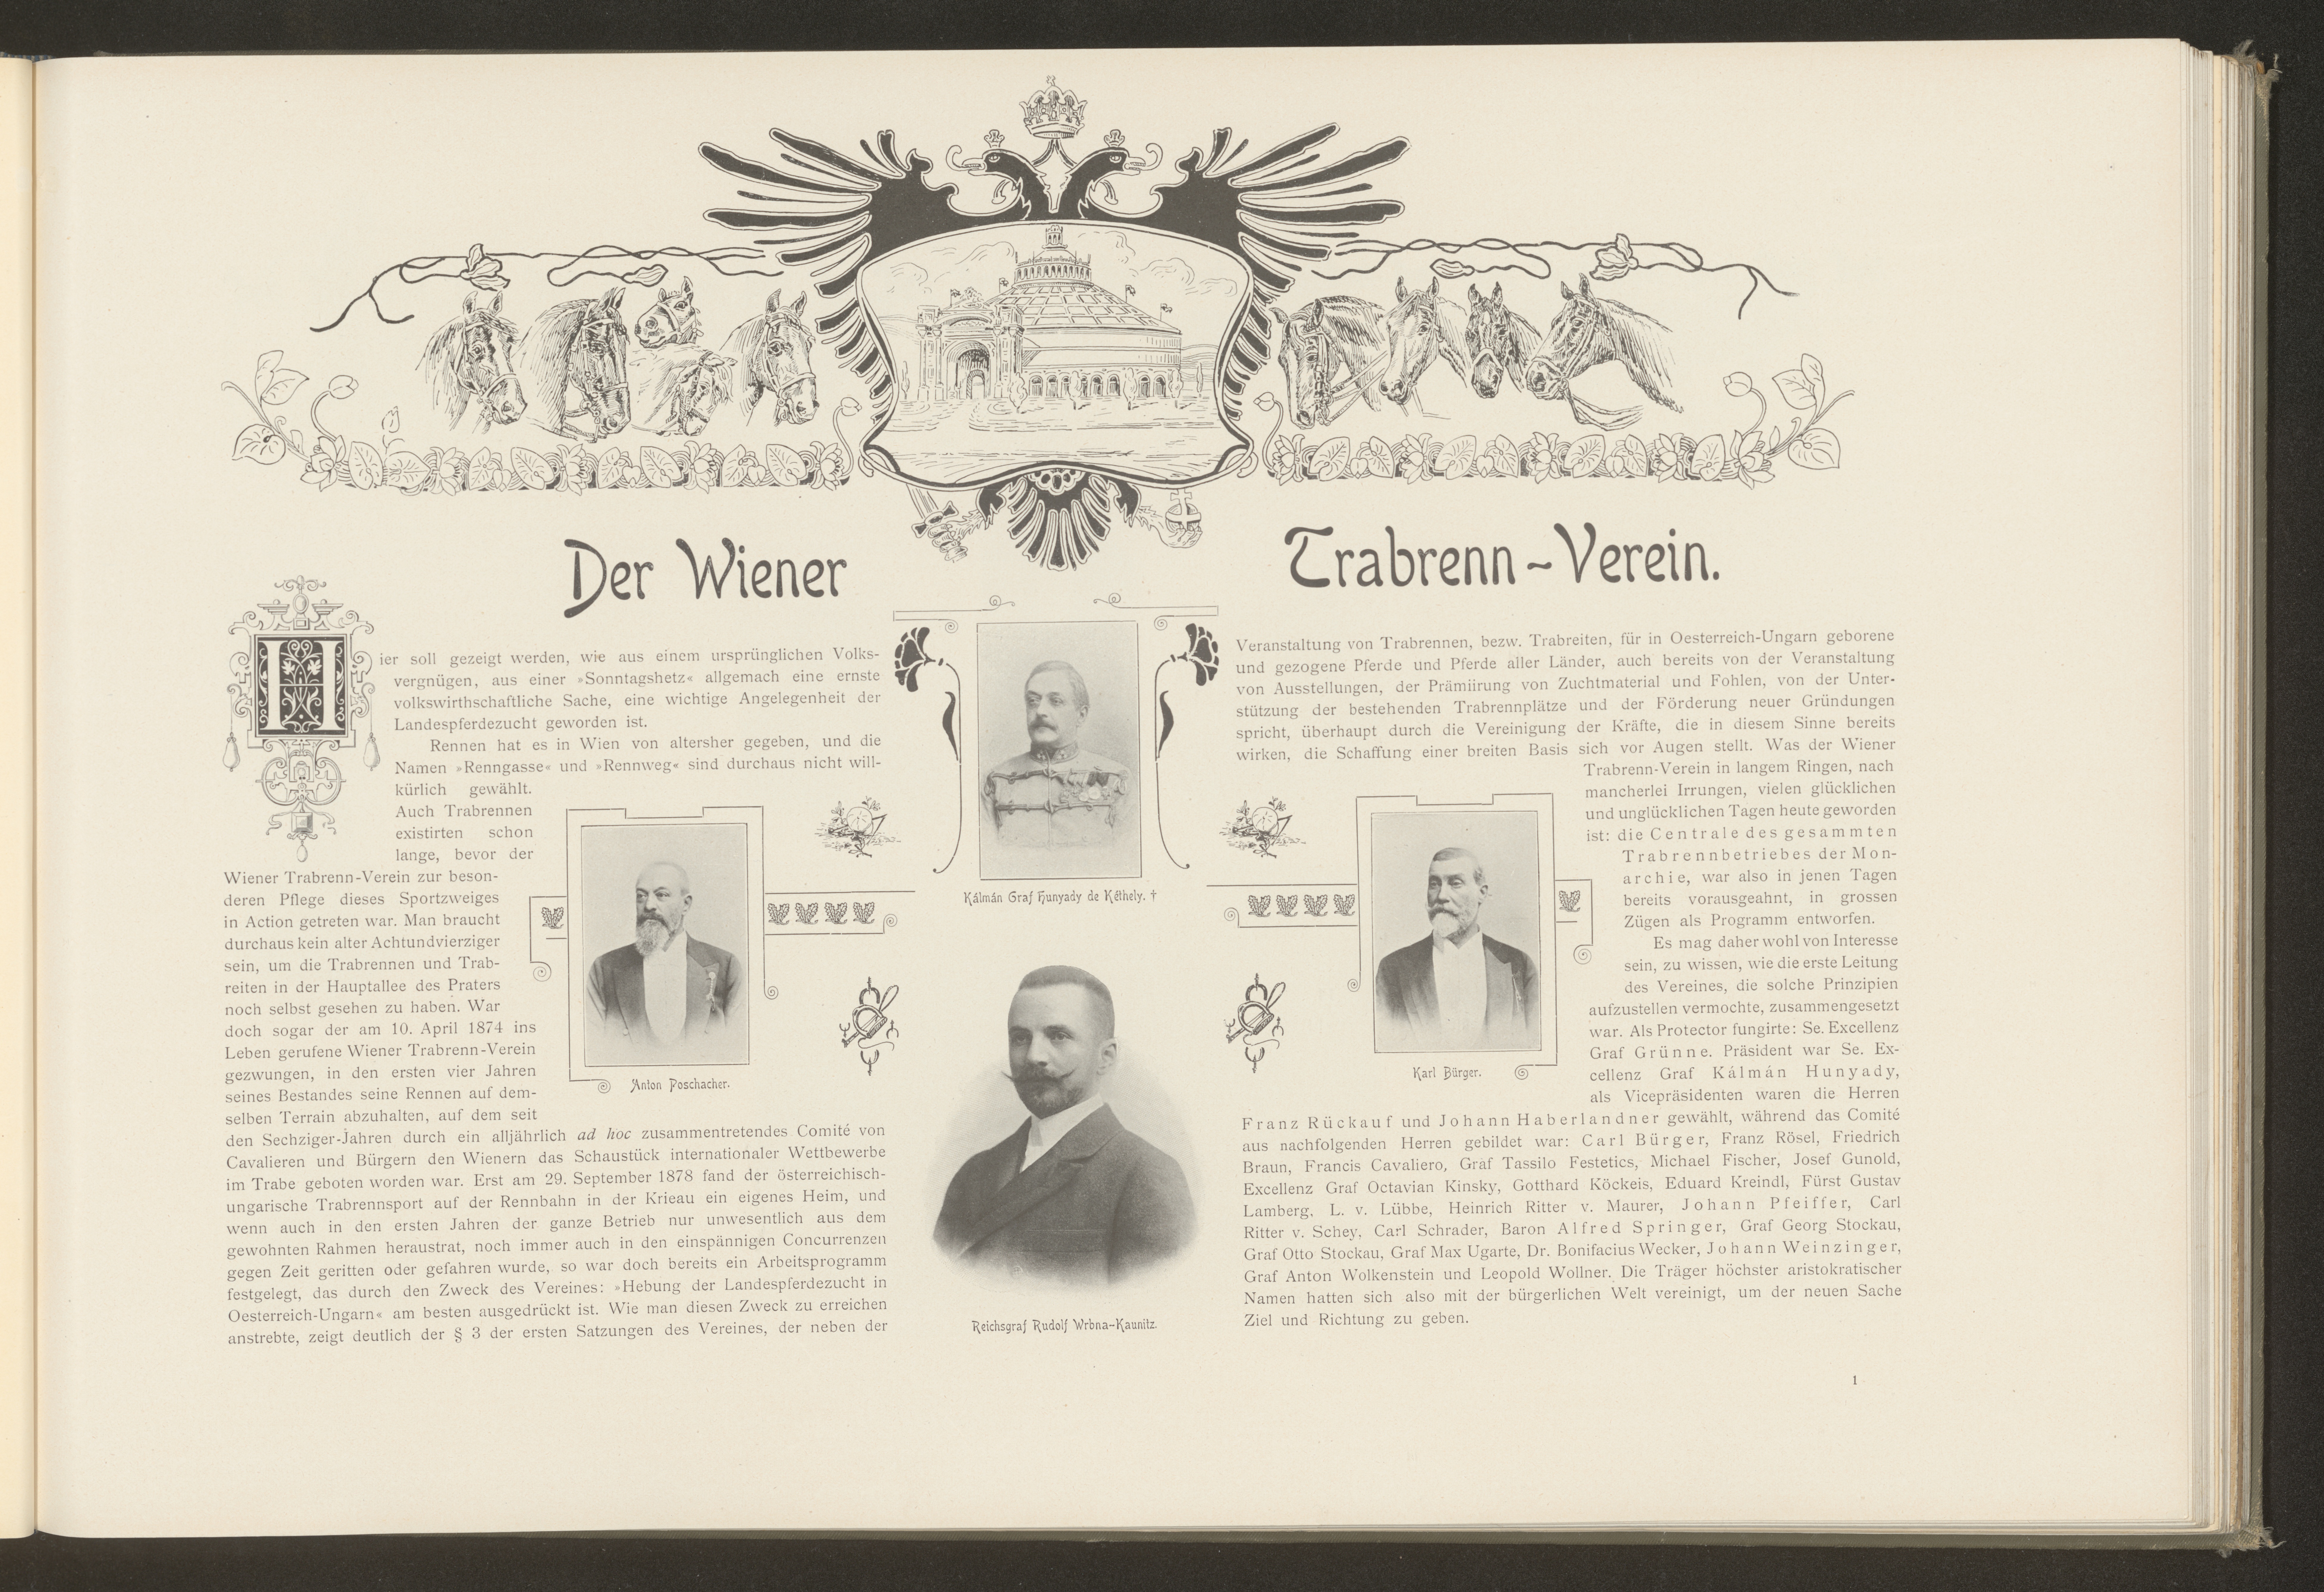 Der Wiener Trabrenn-Verein.
Hier soll gezeigt werden, wie aus einem ursprünglichen Volks-
vergnügen, aus einer »Sonntagshetz« allgemach eine ernste
volkswirthschaftliche Sache, eine wichtige Angelegenheit der
Landespferdezucht geworden ist.
Rennen hat es in Wien von altersher gegeben, und die
Namen »Renngasse« und »Rennweg« sind durchaus nicht will-
kürlich gewählt.
Auch Trabrennen
existirten schon
lange, bevor der
Wiener Trabrenn-Verein zur beson-
deren Pflege dieses Sportzweiges
in Action getreten war. Man braucht
durchaus kein alter Achtundvierziger
sein, um die Trabrennen und Trab-
reiten in der Hauptallee des Praters
noch selbst gesehen zu haben. War
doch sogar der am 10. April 1874 ins
Leben gerufene Wiener Trabrenn-Verein
gezwungen, in den ersten vier Jahren
seines Bestandes seine Rennen auf dem-
selben Terrain abzuhalten, auf dem seit
den Sechziger-Jahren durch ein alljährlich ad hoc zusammentretendes Comité von
Cavalieren und Bürgern den Wienern das Schaustück internationaler Wettbewerbe
im Trabe geboten worden war. Erst am 29. September 1878 fand der österreichisch-
ungarische Trabrennsport auf der Rennbahn in der Krieau ein eigenes Heim, und
wenn auch in den ersten Jahren der ganze Betrieb nur unwesentlich aus dem
gewohnten Rahmen heraustrat, noch immer auch in den einspännigen Concurrenzen
gegen Zeit geritten oder gefahren wurde, so war doch bereits ein Arbeitsprogramm
festgelegt, das durch den Zweck des Vereines: »Hebung der Landespferdezucht in
Oesterreich-Ungarn« am besten ausgedrückt ist. Wie man diesen Zweck zu erreichen
anstrebte, zeigt deutlich der § 3 der ersten Satzungen des Vereines, der neben der
Anton Poschacher.
Kálmán Graf Hunyady de Kéthely. †
Reichsgraf Rudolf Wrbna-Kaunitz.
Karl Bürger.
Veranstaltung von Trabrennen, bezw. Trabreiten, für in Oesterreich-Ungarn geborene
und gezogene Pferde und Pferde aller Länder, auch bereits von der Veranstaltung
von Ausstellungen, der Prämiirung von Zuchtmaterial und Fohlen, von der Unter-
stützung der bestehenden Trabrennplätze und der Förderung neuer Gründungen
spricht, überhaupt durch die Vereinigung der Kräfte, die in diesem Sinne bereits
wirken, die Schaffung einer breiten Basis sich vor Augen stellt. Was der Wiener
Trabrenn-Verein in langem Ringen, nach
mancherlei Irrungen, vielen glücklichen
und unglücklichen Tagen heute geworden
ist: die Centrale des gesammten
Trabrennbetriebes der Mon-
archie, war also in jenen Tagen
bereits vorausgeahnt, in grossen
Zügen als Programm entworfen.
Es mag daher wohl von Interesse
sein, zu wissen, wie die erste Leitung
des Vereines, die solche Prinzipien
aufzustellen vermochte, zusammengesetzt
war. Als Protector fungirte: Se. Excellenz
Graf Grünne. Präsident war Se. Ex-
cellenz Graf Kálmán Hunyady,
als Vicepräsidenten waren die Herren
Franz Rückauf und Johann Haberlandner gewählt, während das Comité
aus nachfolgenden Herren gebildet war: Carl Bürger, Franz Rösel, Friedrich
Braun, Francis Cavaliero, Graf Tassilo Festetics, Michael Fischer, Josef Gunold,
Excellenz Graf Octavian Kinsky, Gotthard Köckeis, Eduard Kreindl, Fürst Gustav
Lamberg, L. v. Lübbe, Heinrich Ritter v. Maurer, Johann Pfeiffer, Carl
Ritter v. Schey, Carl Schrader, Baron Alfred Springer, Graf Georg Stockau,
Graf Otto Stockau, Graf Max Ugarte, Dr. Bonifacius Wecker, Johann Weinzinger,
Graf Anton Wolkenstein und Leopold Wollner. Die Träger höchster aristokratischer
Namen hatten sich also mit der bürgerlichen Welt vereinigt, um der neuen Sache
Ziel und Richtung zu geben.
1